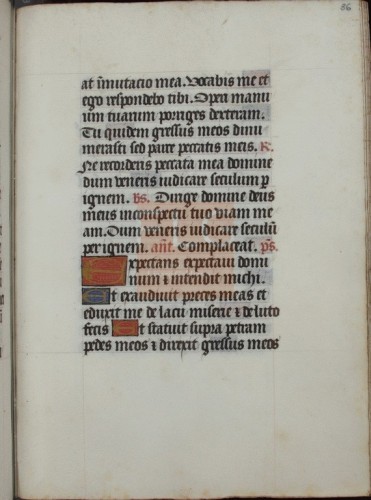 86
at īmutacio mea. Vocabis me et
ego respondebo tibi. Operi manu
um tuarum porriges dexteram.
Tu quidem gressus meos dinu
merasti sed parce peccatis meis. R.
Ne recorderis peccata mea domine
dum veneris iudicare seculum p
ignem. vs. Dirige domine deus
meus inconspectu tuo viam me
am. Dum veneris iudicare seculū
per ignem. añt. Complaceat. ps.
Expectans expectavi domi
num ⁊ intendit michi.
Et exaudivit preces meas et
eduxit me de lacu miserie ⁊ de luto
fecis Et statuit supra petram
pedes meos ⁊ direxit gressus meos